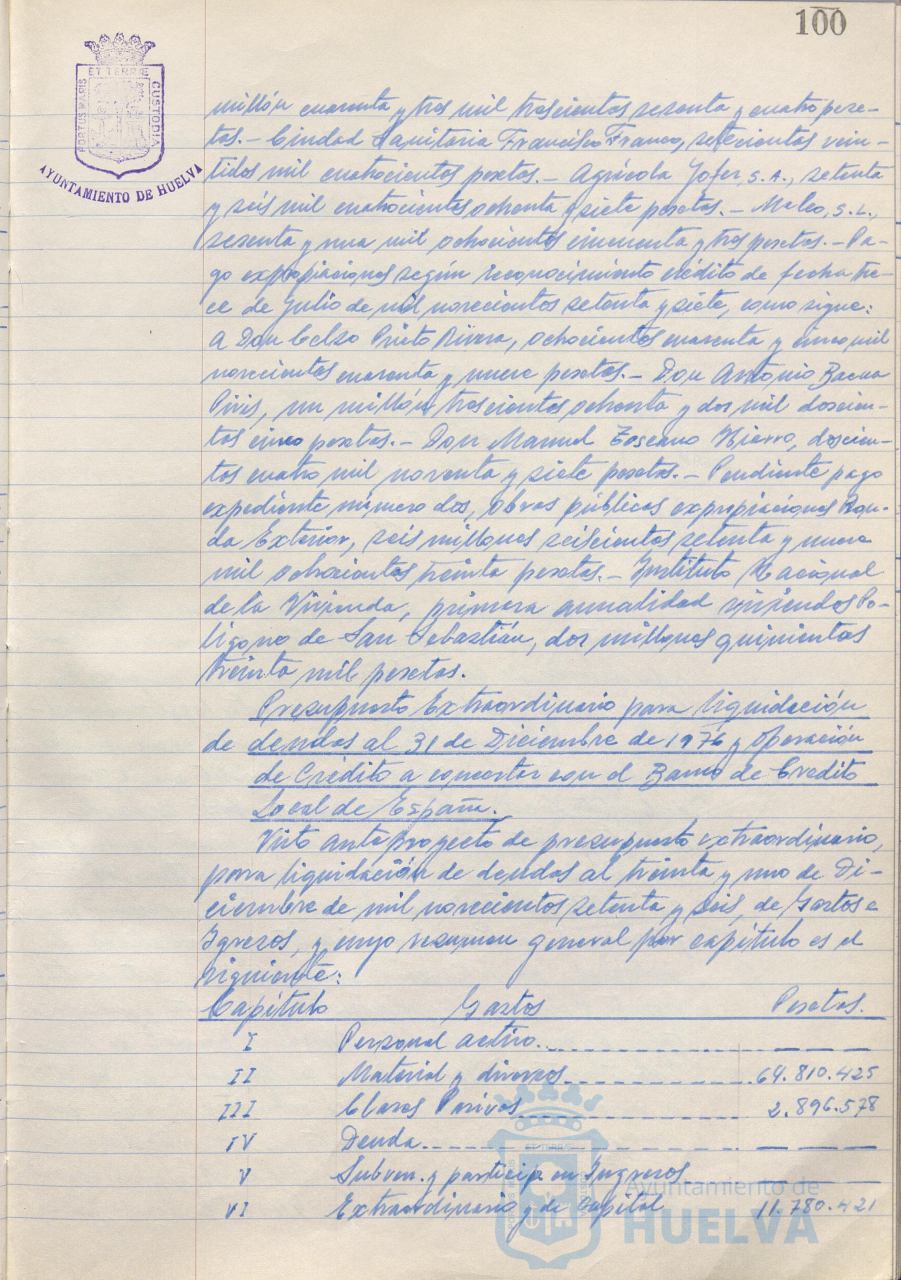 100
ET TERRÆ
PORTUS MARIS
CUSTODIA
AYUNTAMIENTO DE HUELVA
millón cuarenta y tres mil trescientos sesenta y cuatro pese-
tas.- Ciudad Sanitaria Francisco Franco, setecientos vein-
tidos mil cuatrocientos pesetas.- Agrícola Jofer, S.A., setenta
y seis mil cuatrocientos ochenta y siete pesetas.- Maleo, S.L.,
sesenta y una mil ochocientos cincuenta y tres pesetas.- Pa-
go expropiaciones según reconocimiento crédito de fecha tre-
ce de Julio de mil novecientos setenta y siete, como sigue:
a Don Celso Prieto Rivera, ochocientos cuarenta y cinco mil
novecientos cuarenta y nueve pesetas.- Don Antonio Baena
un millón trescientos ochenta y dos mil doscien-
tos cinco pesetas.- Don Manuel Toscano Hierro, doscien-
tos cuatro mil noventa y siete pesetas.- Pendiente pago
expediente número dos, obras públicas expropiaciones Ron-
da Exterior, seis millones seiscientos setenta y nueve
mil ochocientos treinta pesetas.- Instituto Nacional
de la Vivienda, primera anualidad viviendas Po-
lígono de San Sebastián, dos millones quinientas
treinta mil pesetas.
Presupuesto Extraordinario para liquidación
de deudas al 31 de Diciembre de 1976 y Operación
de Crédito a concertar con el Banco de Credito
Local de España.
Visto anteproyecto de presupuesto extraordinario,
para liquidación de deudas al treinta y uno de Di-
ciembre de mil novecientos setenta y seis, de Gastos e
Igresos, y cuyo resumen general por capítulo es el
siguiente:
Capítulo Gastos Pesetas.
I Personal activo
II Material y diversos 64.810.425
III Clases Pasivas 2.896.578
IV Deuda
V Subven. y particip. en Ingresos
VI Extraordinario y de Capital 11.780.421
Ayuntamiento de
HUELVA